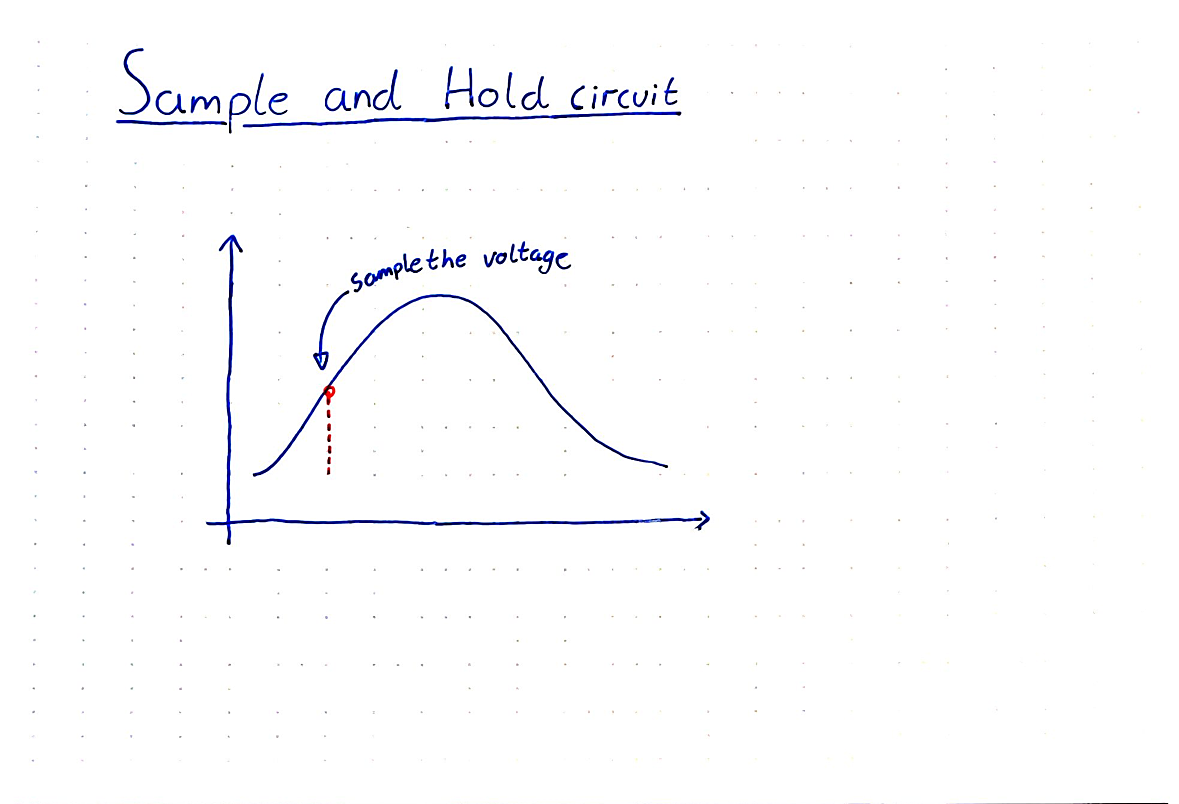 Sample and Hold circuit
sample the voltage